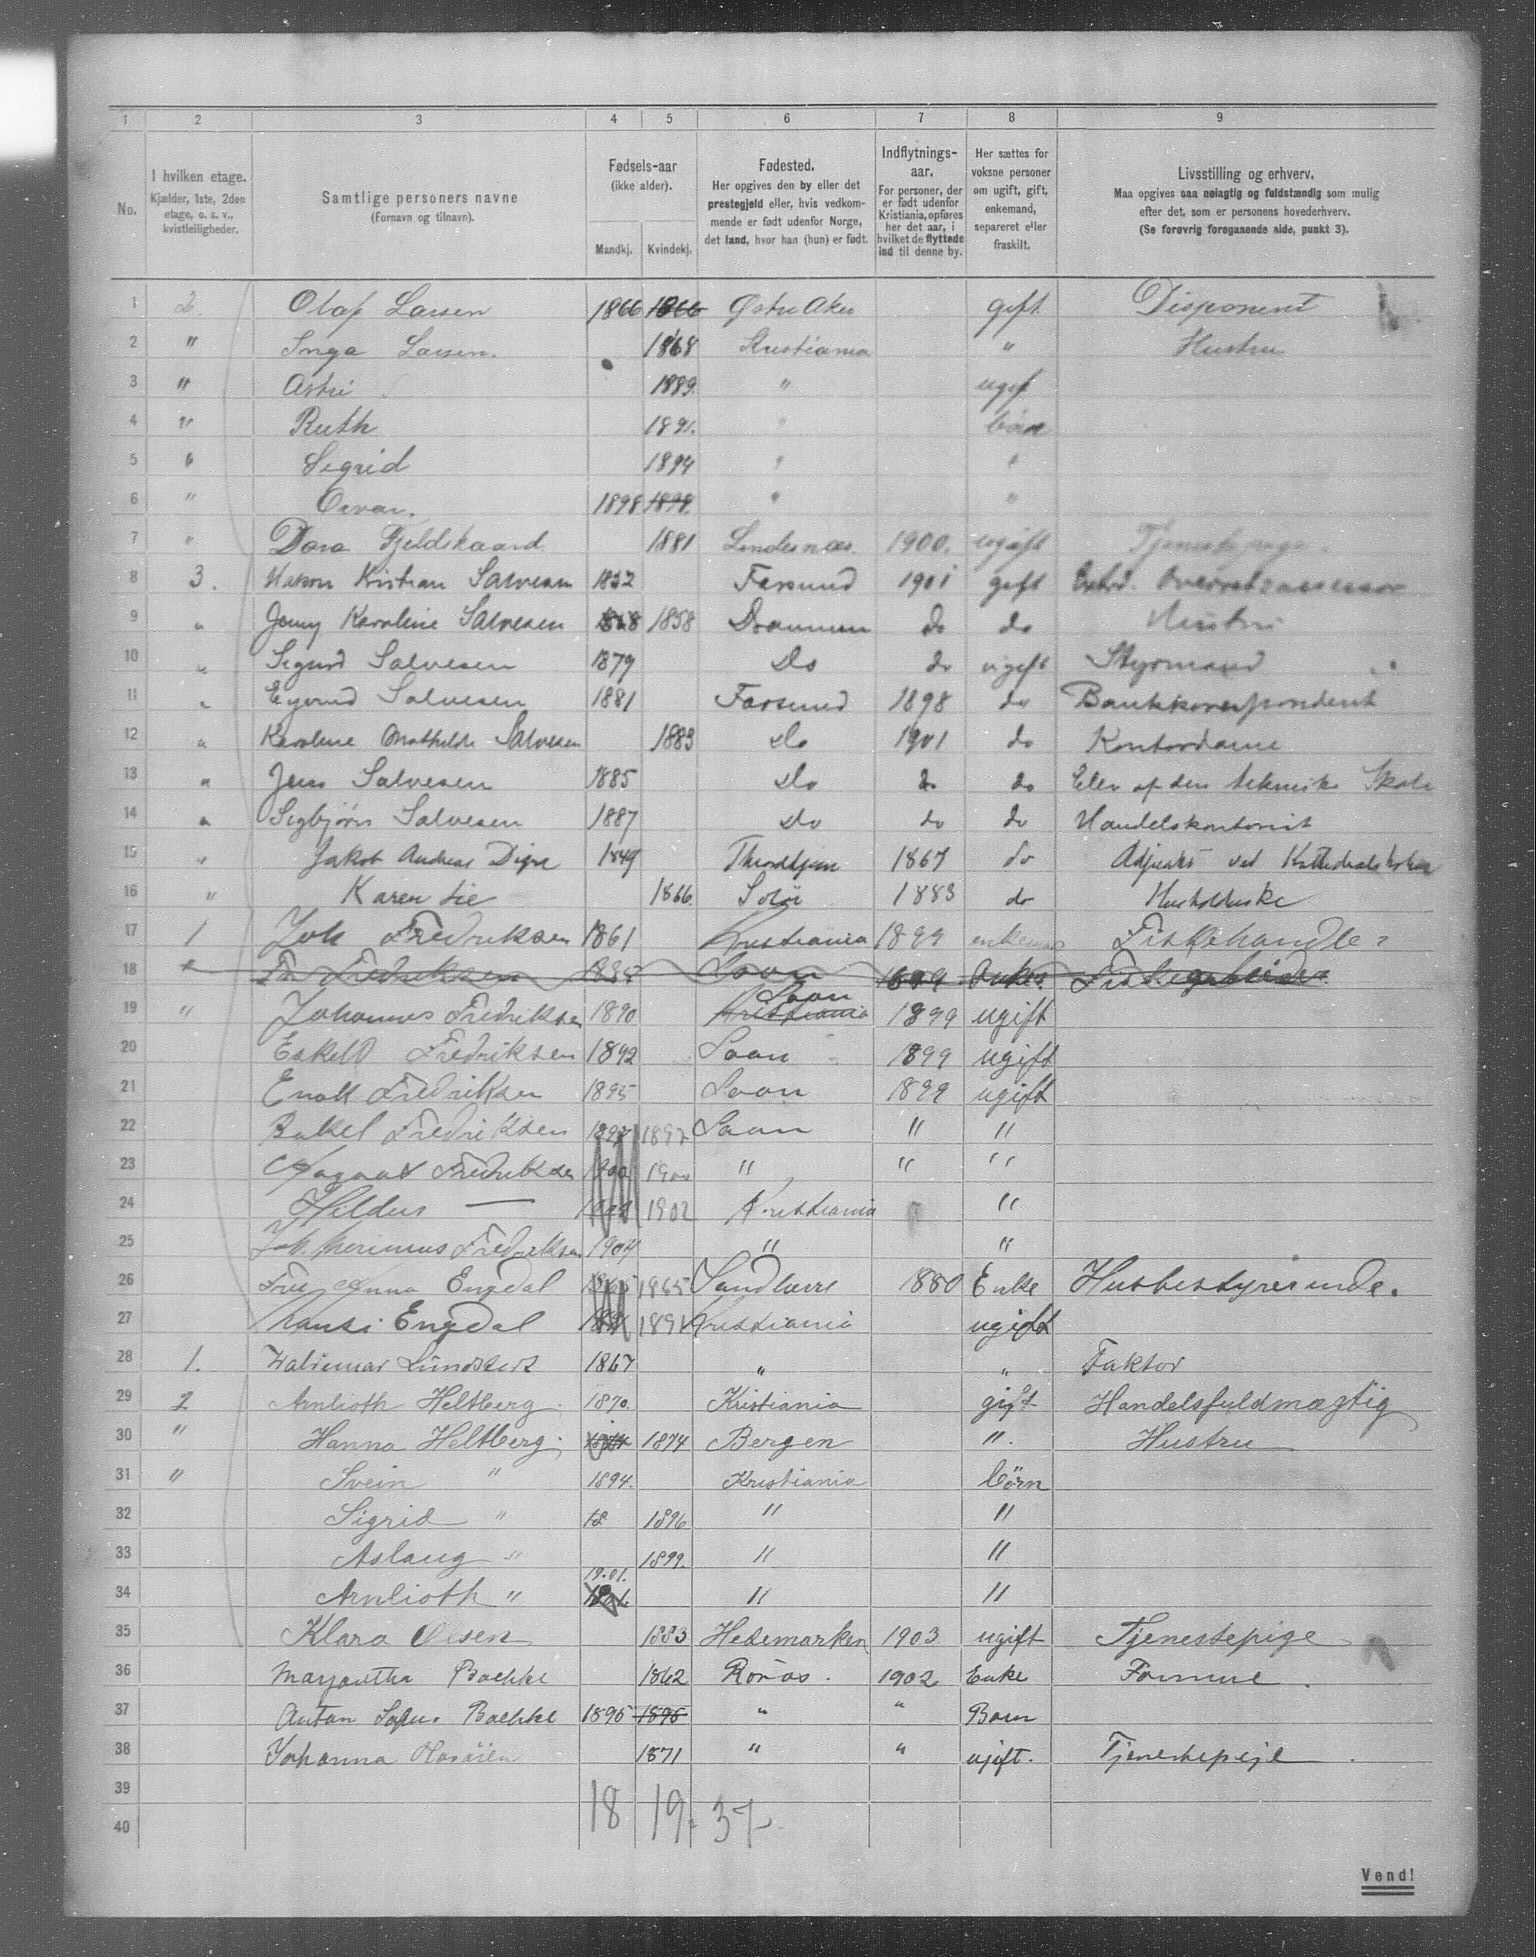 1 2 3 4 5 6 7 8 9
No. I hvilken etage. Kjælder, 1ste, 2den etage, o. s. v., kvistleiligheder.
Samtlige personers navne (Fornavn og tilnavn).
Fødsels-aar (ikke alder). Mandkj. Kvindekj.
Fødested. Her opgives den by eller det prestegjeld eller, hvis vedkommende er født udenfor Norge, det land, hvor han (hun) er født.
Indflytnings-aar. For personer, der er født udenfor Kristiania, opføres her det aar, i hvilket de flyttede ind til denne by.
Her sættes for voksne personer om ugift, gift, enkemand, separeret eller fraskilt.
Livsstilling og erhverv. Maa opgives saa nøiagtig og fuldstændig som mulig efter det, som er personens hovederhverv. (Se forøvrig foregaaende side, punkt 3).
1 2. Olaf Larsen 1866 1866 Østre Aker gift Disponent
2 " Inga Larsen. 1868 Kristiania " Hustru
3 " Astri 1889. " ugift
4 " Ruth 1891. " børn
5 " Sigrid 1894 " "
6 " 1898 1898 " "
7 " Dora Fjeldskaard 1881 Lindesnæs. 1900. ugift Tjenestepige.
8 3. Hakon Kristian Salvesen Farsund 1901 gift Overretssassessor
9 " Jenny Karoline Salvesen 1858 Drammen do do Hustru
10 " Sigurd Salvesen 1879 Do do ugift Styrmand
11 " Eyvind Salvesen 1881 Farsund 1898 do Bankkorrespondent
12 " Karoline Mathilde Salvesen 1883 Do 1901 do Kontordame
13 " Jens Salvesen 1885 Do do do Elev af den tekniske Skole
14 " Sigbjørn Salvesen 1887 Do do do Handelskontorist
15 " Jakob Andreas Digre 1849 Throndhjem 1867 do Adjunkt ved Kathedralskolen
16 " Karen Lie 1866. Solør 1883 do Husholderske
17 1 Joh Fredriksen 1861 Kristiania 1899 enkeman Fiskehandler
18 " Fredriksen Soon 1899
19 " Johannes Fredriksen 1890 Kristiania Soon 1899 ugift
20 Eskeld Fredriksen 1892 Soon 1899 ugift
21 Enok Fredriksen 1895 Soon 1899 ugift
22 Rakel Fredriksen 1897 1897 Soon " "
23 Fredriksen 1900 1900 " " "
24 — 1902 Kristiania "
25 Joh. Fredriksen 1904 " "
26 Fru Anna Engdal 1865 1865 1880 Enke Husbestyrerinde.
27 Engdal 1891 Kristiania ugift
28 1. Valdemar 1867 " " Faktor
29 2 Arnlioth Heltberg. 1870. Kristiania gift Handelsfuldmægtig
30 " Hanna Heltberg. 1874 1874 Bergen ". Hustru
31 " Svein " 1894. Kristiania børn
32 Sigrid " 18 1896 " "
33 Aslaug " 1899. " "
34 Arnlioth " 1901. " "
35 Klara Olsen 1883 Hedemarken 1903 ugift Tjenestepige
36 Margretha Bachke 1862 Røros. 1902 Enke Formue.
37 Anton Bachke 1895 1895 " " Barn
38 Johanna 1871 " " ugift. Tjenestepige
39
40
18 19. 37.
Vend!